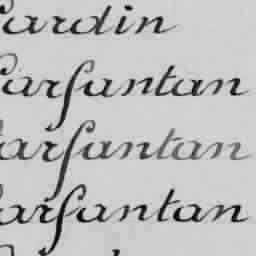 ardin
arſantan
arſantan
arſantan